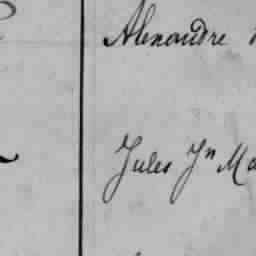 Alexandre
Jules Jn Ma